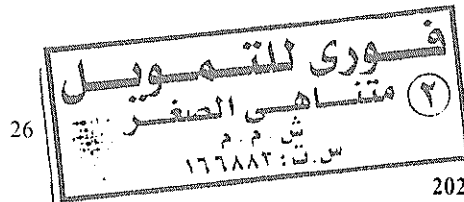 فورى للتمويل
متناهى الصغر
٢
ش . م . م
س.ت: ١٦٦٨٨٣
26
202